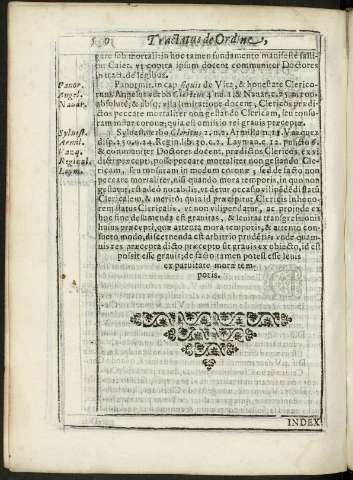 Tractatus de Ordine,
gare sub mortali: in hoc tamen fundamento manifestè falli-
tur Caiet. vt contra ipsum docent communiter Doctores
in tract. de legibus.
Panor.
Angel.
Nauar.
Panormit. in cap. & honestate Clerico-
absolutè, & absq; vlla limitatione docent, Clericos prædi-
ctos peccare mortaliter non gestando Clericam, seu tonsu-
ram instar coronæ, quia est omissio rei grauis præceptæ.
Syluest.
Armil.
Vazq.
Reginal.
Laym.
Syluest. verbo Clericus 2. n. 2. Armilla n. 12. Vasquez
& communiter Doctores docent, prædictos Clericos, ex vi
dicti præcepti, posse peccare mortaliter non gestando Cle-
ricam, seu tonsuram in modum coronæ; sed de facto non
peccare mortaliter, nisi quando mora temporis, in quo non
gestatur, est adeò notabilis, vt detur occasio
Clericalem, & meritò: quia id præcipitur Clericis in hono-
rem status Clericalis, ac proinde ex
hoc fine desumenda est grauitas, & leuitas transgressionis
huius præcepti, quæ attenta mora temporis, & attento con-
sueto modo, discernenda est arbitrio prudentis: vnde quam-
uis res præcepta dicto præcepto sit grauis ex obiecto, id est
possit esse grauis; de facto tamen potest esse leuis
ex paruitate moræ tem-
poris.
INDEX